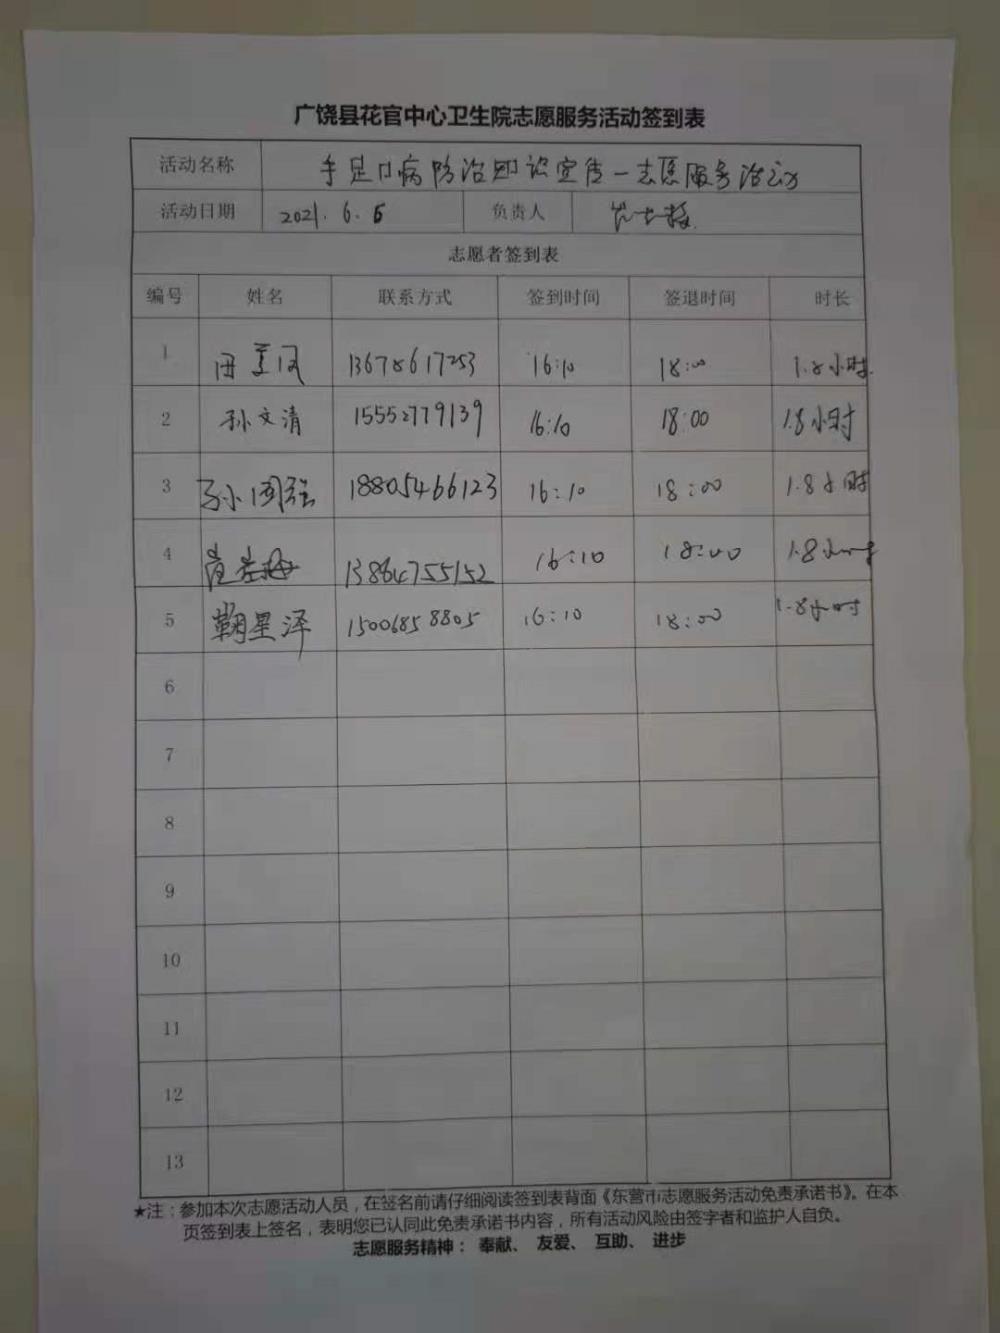 广饶县花官中心卫生院志愿服务活动签到表
活动名称 手足口病防治知识宣传-志愿服务活动
活动日期 2021.6.6 负责人
志愿者签到表
编号 姓名 联系方式 签到时间 签退时间 时长
1 13678617253 16:10 18:00 1.8小时
2 孙文清 15552779139 16:10 18:00 1.8小时
3 孙国强 18805466123 16:10 18:00 1.8小时
4 13864755152 16:10 18:00 1.8小时
5 鞠星泽 15006858805 16:10 18:00 1.8小时
6
7
8
9
10
11
12
13
★注：参加本次志愿活动人员，在签名前请仔细阅读签到表背面《东营市志愿服务活动免责承诺书》。在本
页签到表上签名，表明您已认同此免责承诺书内容，所有活动风险由签字者和监护人自负。
志愿服务精神： 奉献、 友爱、 互助、 进步